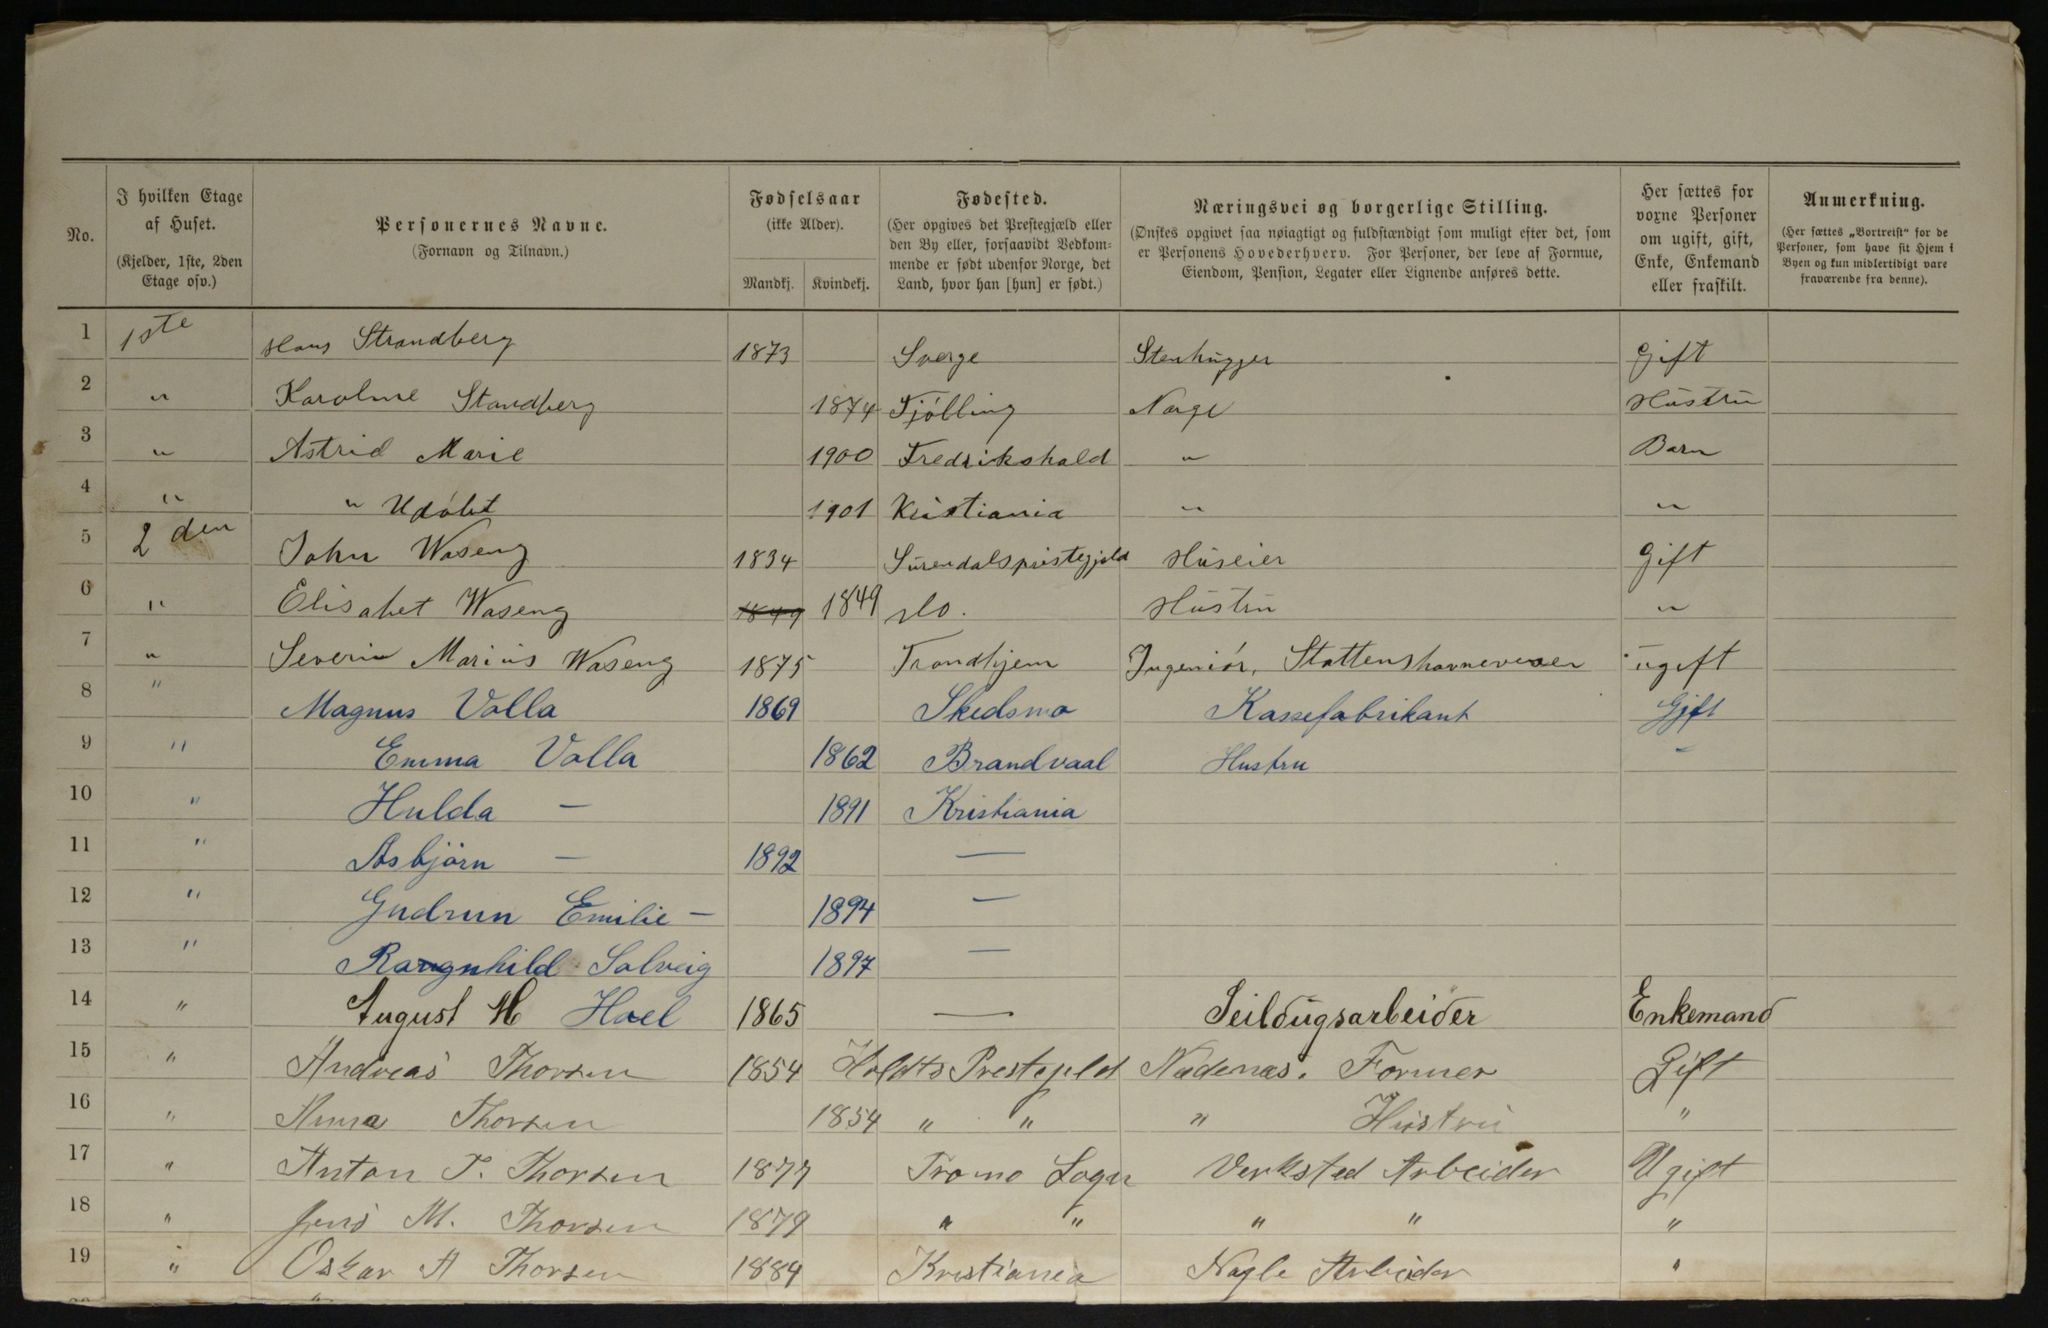 No. | I hvilken Etage af Huset. (Kjelder, 1ste, 2den Etage osv.) | Personernes Navne. (Fornavn og Tilnavn.) | Fødselsaar (ikke Alder). Mandkj. | Kvindekj. | Fødested. (Her opgives det Prestegjæld eller den By eller, forsaavidt Vedkommende er født udenfor Norge, det Land, hvor han [hun] er født.) | Næringsvei og borgerlige Stilling. (Ønskes opgivet saa nøiagtigt og fuldstændigt som muligt efter det, som er Personens Hovederhverv. For Personer, der leve af Formue, Eiendom, Pension, Legater eller Lignende anføres dette. | Her sættes for voxne Personer om ugift, gift, Enke, Enkemand eller fraskilt. | Anmerkning. (Her sættes „Bortreist" for de Personer, som have sit Hjem i Byen og kun midlertidigt vare fraværende fra denne).
1 1ste Hans Strandberg 1873 Sverge Stenhugger Gift
2 " Karoline Standberg 1874 Tjölling Norge Hustru
3 " Astrid Marie 1900 Fredrikshald " Barn
4 " " Udöbt 1901 Kristiania " "
5 2den John Waseng 1834 Surendalspristegjeld Huseier Gift
6 " Elisabet Waseng 1849 1849 do. Hustru "
7 " Severin Marius Waseng 1875 Trondhjem Ingeniör, Stattenshavnevesen ugift
8 " Magnus Volla 1869 Skedsmo Kassefabrikant Gift
9 " Emma Volla 1862 Brandvaal Hustru –
10 " Hulda — 1891 Kristiania
11 " Asbjörn — 1892 —
12 " Gudrun Emilie — 1894 —
13 " Rangnhild Solveig 1897 —
14 " August H Hoel 1865 — Seildugsarbeider Enkemand
15 " Andreas Thorsen 1854 Holdts Prestegjeld Nedenæs. Former Gift
16 " Anna Thorsen 1854 " " " Hustru "
17 " Anton T. Thorsen 1877 Tromø Sogn Verksted Arbeider Ugift
18 " Jens M. Thorsen 1879 " " " " "
19 " Oskar A Thorsen 1884 Kristiania Nagle Arbeider "